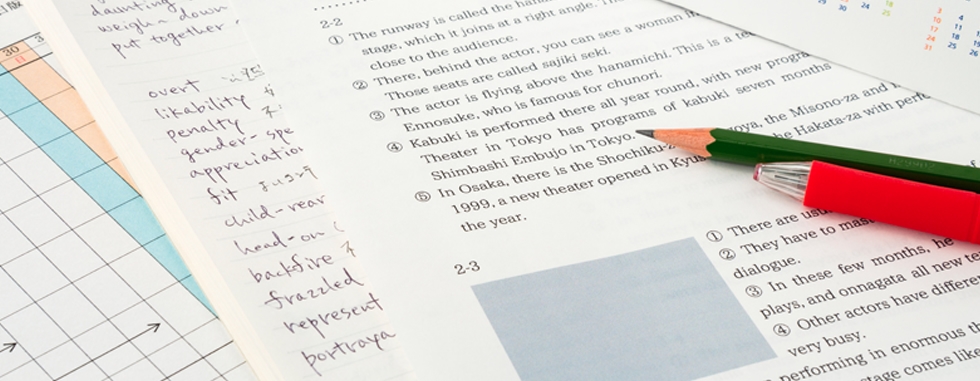 30
daunting
weigh-down
put together
overt
likability
penalty
gender-spe
appreciation
fit
child-rear
head-on
backfire
frazzled
represent
portraya
2-2
① The runway is called the hana
stage, which it joins at a right angle. Thi
close to the audience.
② There, behind the actor, you can see a woman in
Those seats are called sajiki seki.
③ The actor is flying above the hanamichi. This is a te
Ennosuke, who is famous for chunori.
④ Kabuki is performed there all year round, with new progra
Theater in Tokyo has programs of kabuki seven months
Shimbashi Embujo in Tokyo.
⑤ In Osaka, there is the Shochiku oya, the Misono-za and
1999, a new theater opened in Kyu he Hakata-za with perf
the year.
2-3
① There are usu
② They have to mast
dialogue.
③ In these few months, he
plays, and onnagata all new te
④ Other actors have differe
very busy.
performing in enormous th
stage comes like
29 30
25
3 4 5
10 11 12
17 18 19
24 25 26
31